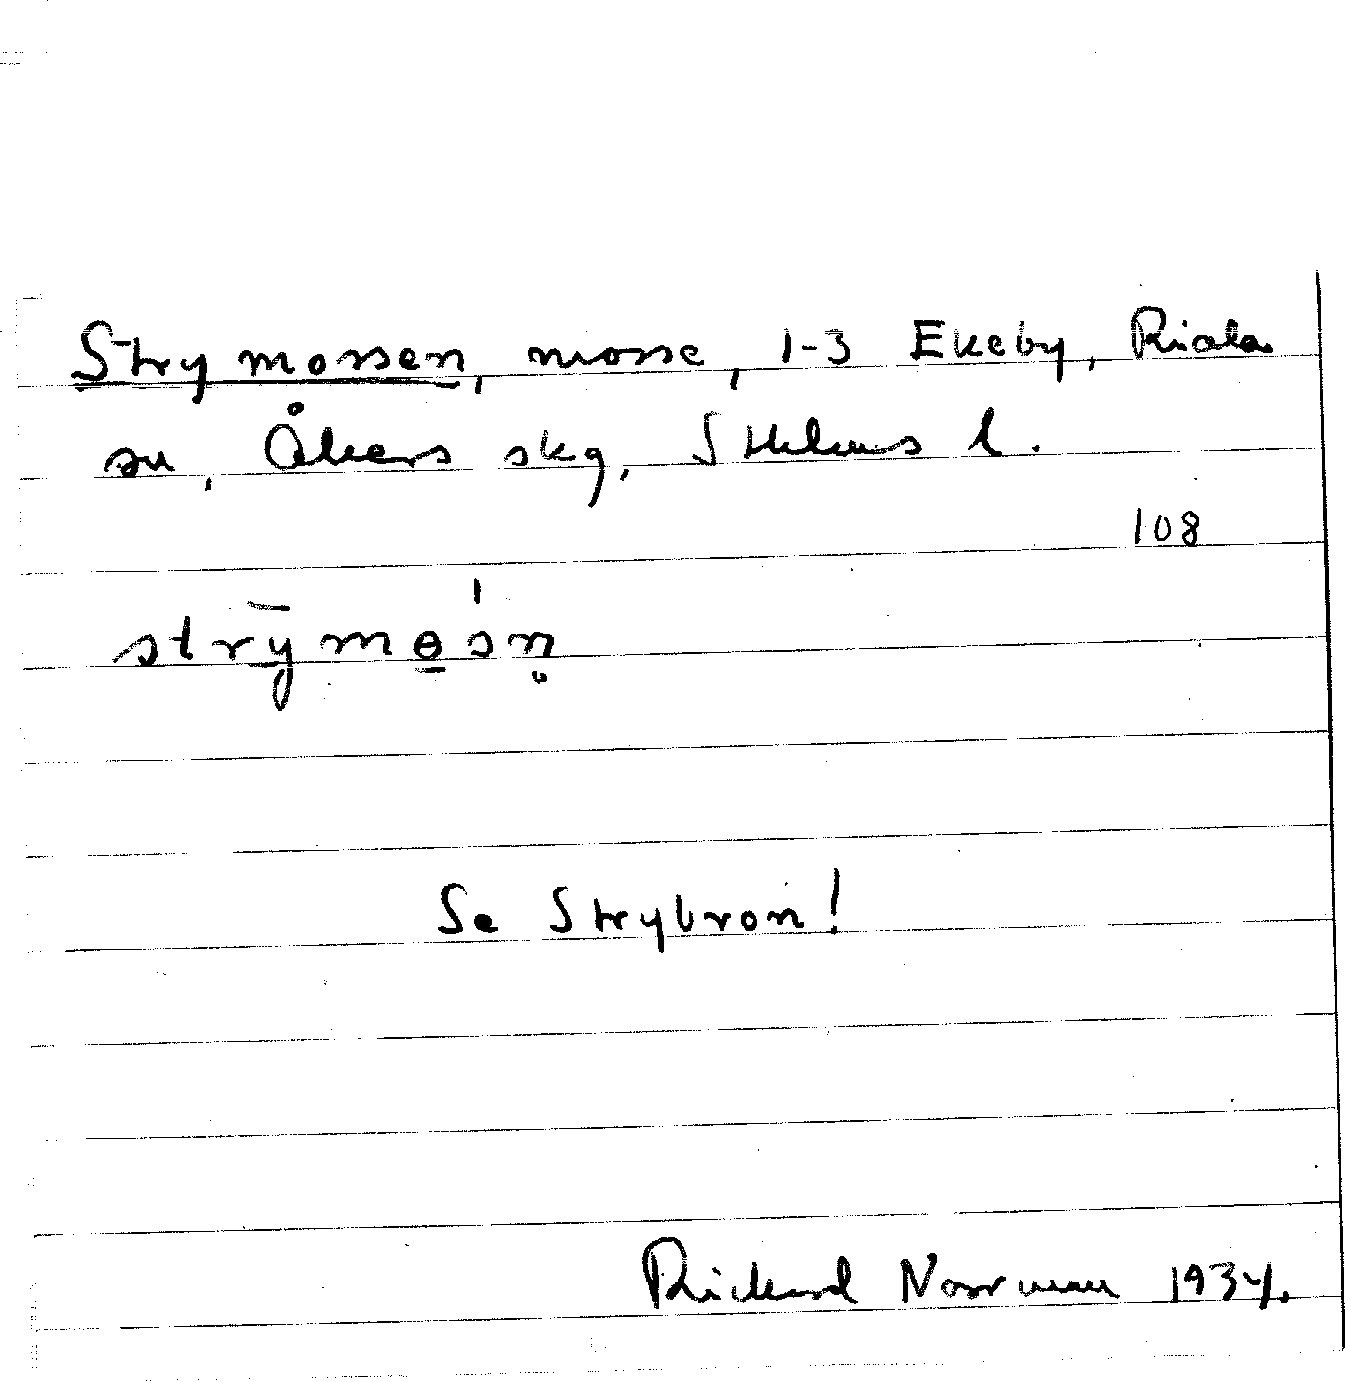 Strymossen, mosse, 1-3 Ekeby, Riala
sn, Åkers skg, Sthlms l.
108
strȳmo̲śn̥
Se Strybron!
Rickard Norrman 1934.